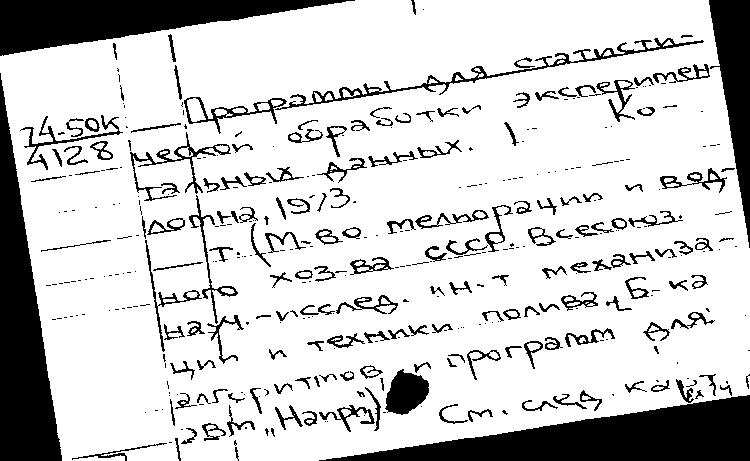 74-50к
4128
Программы для статисти-
ческой обработки эксперимен-
тальных данных. 1- Ко-
ломна, 1973.
т. (М-во мелиорации и вод-
ного хоз-ва СССР. Всесоюз.
науч.-исслед. ин-т механиза-
ции и техники полива. Б-ка
алгоритмов и программ для
ЭВМ „Наири")
См. след. карт